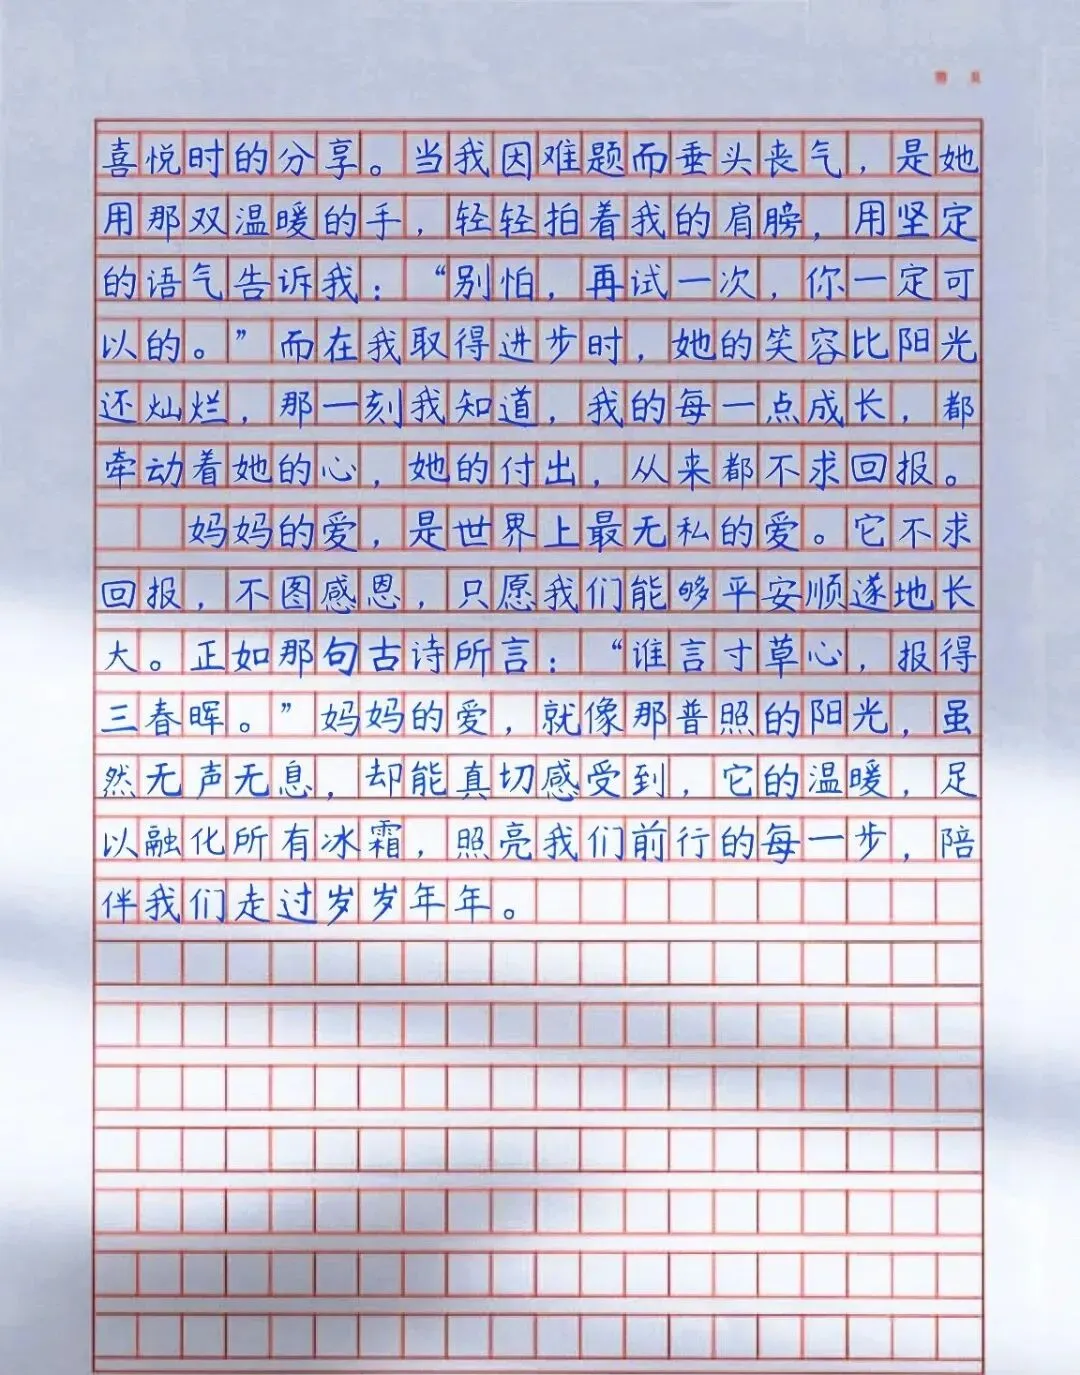 喜悦时的分享。当我因难题而垂头丧气，是她
用那双温暖的手，轻轻拍着我的肩膀，用坚定
的语气告诉我：“别怕，再试一次，你一定可
以的。”而在我取得进步时，她的笑容比阳光
还灿烂，那一刻我知道，我的每一点成长，都
牵动着她的心，她的付出，从来都不求回报。
妈妈的爱，是世界上最无私的爱。它不求
回报，不图感恩，只愿我们能够平安顺遂地长
大。正如那句古诗所言：“谁言寸草心，报得
三春晖。”妈妈的爱，就像那普照的阳光，虽
然无声无息，却能真切感受到，它的温暖，足
以融化所有冰霜，照亮我们前行的每一步，陪
伴我们走过岁岁年年。